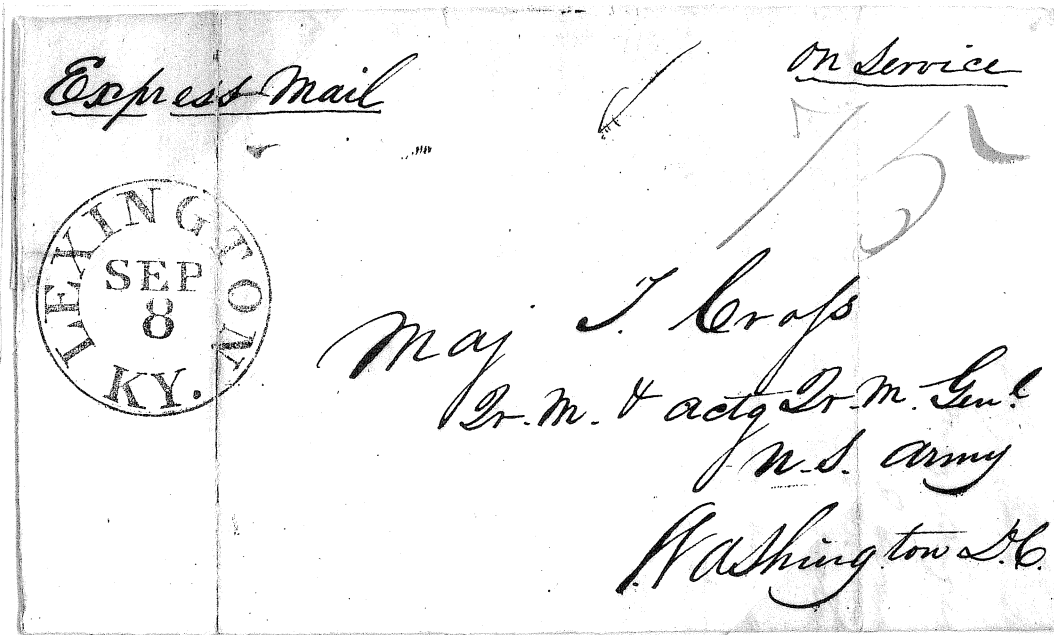 Express Mail
On Service
75
LEXINGTON
SEP
8
KY.
Maj T. Cross
Qr. M. & actg Qr. M. Genl
U.S. Army
Washington D.C.